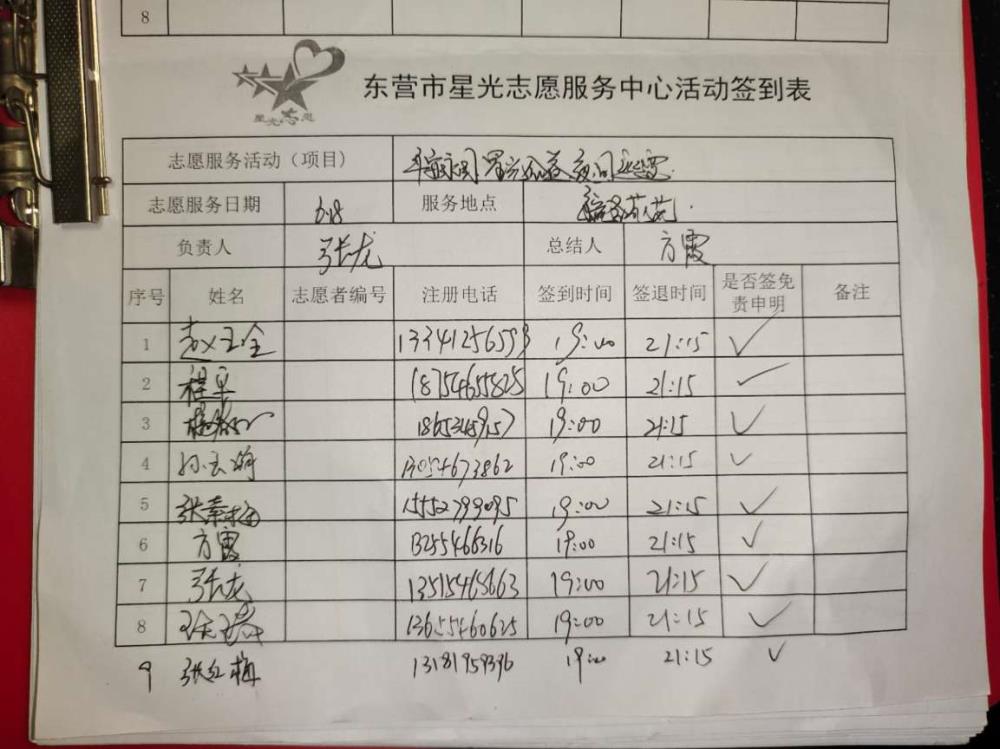 8
星光志愿
东营市星光志愿服务中心活动签到表
志愿服务活动（项目） 夜间巡露
志愿服务日期 6.18 服务地点
负责人 张龙 总结人 方霞
序号 姓名 志愿者编号 注册电话 签到时间 签退时间 是否签免责申明 备注
1 赵玉全 13341256593 19:00 21:15 ✓
2 程早 18754655825 19:00 21:15 ✓
3 19:00 21:15 ✓
4 13054673862 19:00 21:15 ✓
5 张素梅 15552799095 19:00 21:15 ✓
6 方霞 13255466316 19:00 21:15 ✓
7 张龙 13515465663 19:00 21:15 ✓
8 13655460625 19:00 21:15 ✓
9 张红梅 13181959396 19:00 21:15 ✓